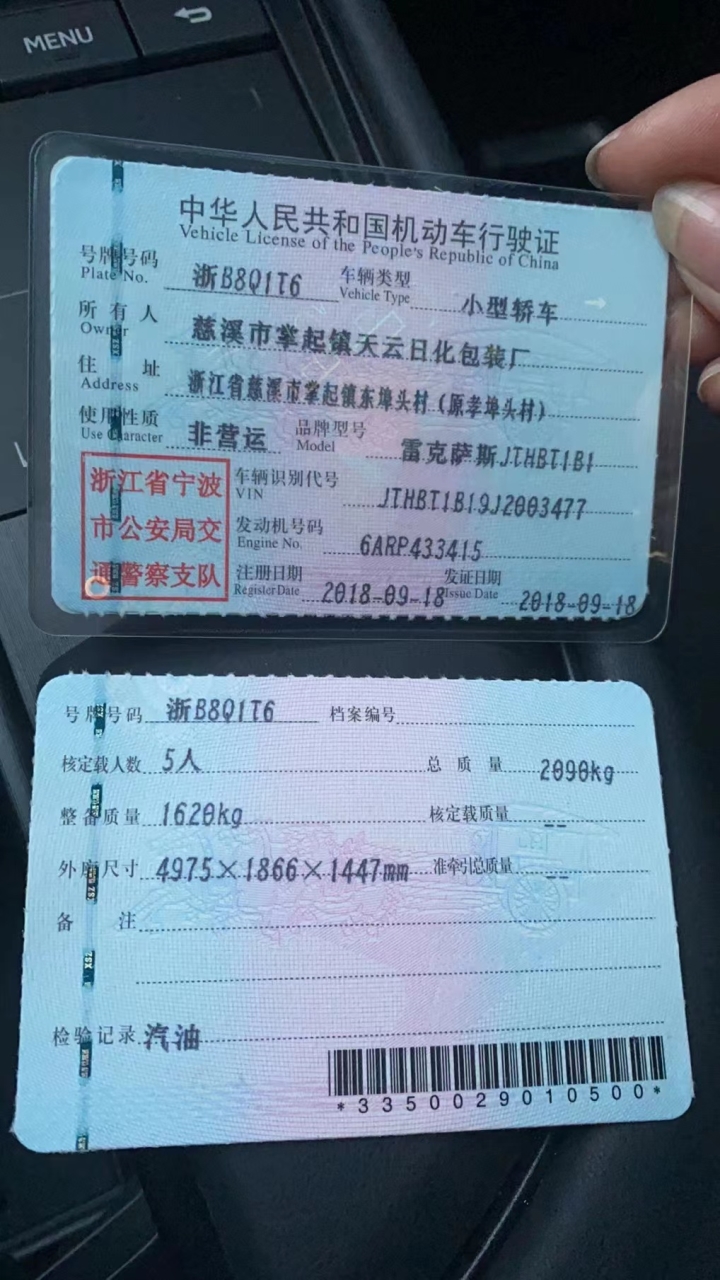 MENU
中华人民共和国机动车行驶证
Vehicle License of the People's Republic of China
号牌号码 浙B8Q1T6 车辆类型 小型轿车
Plate No. Vehicle Type
所有人 慈溪市掌起镇天云日化包装厂
Owner
住址 浙江省慈溪市掌起镇东埠头村（原孝埠头村）
Address
使用性质 非营运 品牌型号 雷克萨斯JTHBT1B1
Use Character Model
浙江省宁波 车辆识别代号 JTHBT1B19J2003477
VIN
市公安局交 发动机号码 6ARP433415
Engine No.
通警察支队 注册日期 2018-09-18 发证日期 2018-09-18
Register Date Issue Date
号牌号码 浙B8Q1T6 档案编号
核定载人数 5人 总质量 2090kg
整备质量 1620kg 核定载质量 --
外廓尺寸 4975×1866×1447mm 准牵引总质量 --
备注
检验记录 汽油
*3350029010500*